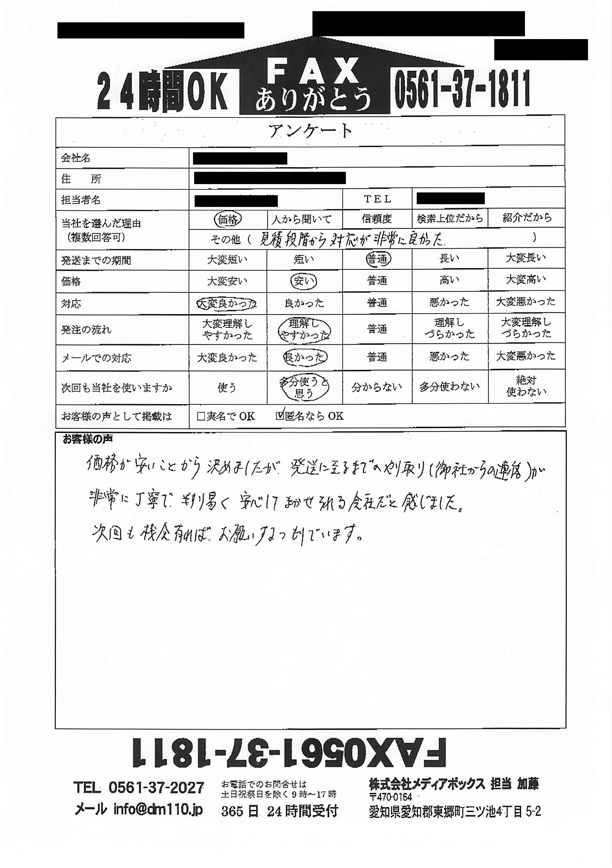 24時間OK
FAX
ありがとう
0561-37-1811
アンケート
会社名
住 所
担当者名 TEL
当社を選んだ理由 (複数回答可) 価格 人から聞いて 信頼度 検索上位だから 紹介だから
その他 ( 見積段階から対応が非常に良かった )
発送までの期間 大変短い 短い 普通 長い 大変長い
価格 大変安い 安い 普通 高い 大変高い
対応 大変良かった 良かった 普通 悪かった 大変悪かった
発注の流れ 大変理解しやすかった 理解しやすかった 普通 理解しづらかった 大変理解しづらかった
メールでの対応 大変良かった 良かった 普通 悪かった 大変悪かった
次回も当社を使いますか 使う 多分使うと思う 分からない 多分使わない 絶対使わない
お客様の声として掲載は □実名でOK ☑匿名ならOK
お客様の声
価格が安いことから決めましたが、発送に至るまでのやり取り(御社からの連絡)が
非常に丁寧で、判り易く安心してまかせられる会社だと感じました。
次回も機会有れば、お願いするつもりでいます。
FAX0561-37-1811
TEL 0561-37-2027
メール info@dm110.jp
お電話でのお問合せは
土日祝祭日を除く9時〜17時
365日24時間受付
株式会社メディアボックス 担当 加藤
〒470-0164
愛知県愛知郡東郷町三ツ池4丁目5-2